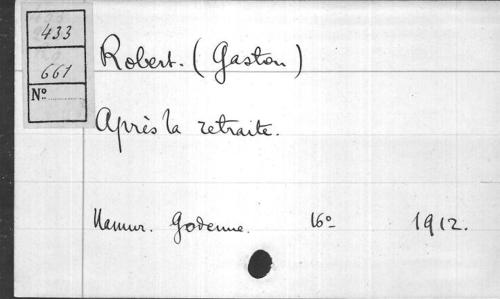 433
661
Nº
Robert. (Gaston)
Après la retraite.
Namur. Godenne. 16º 1912.